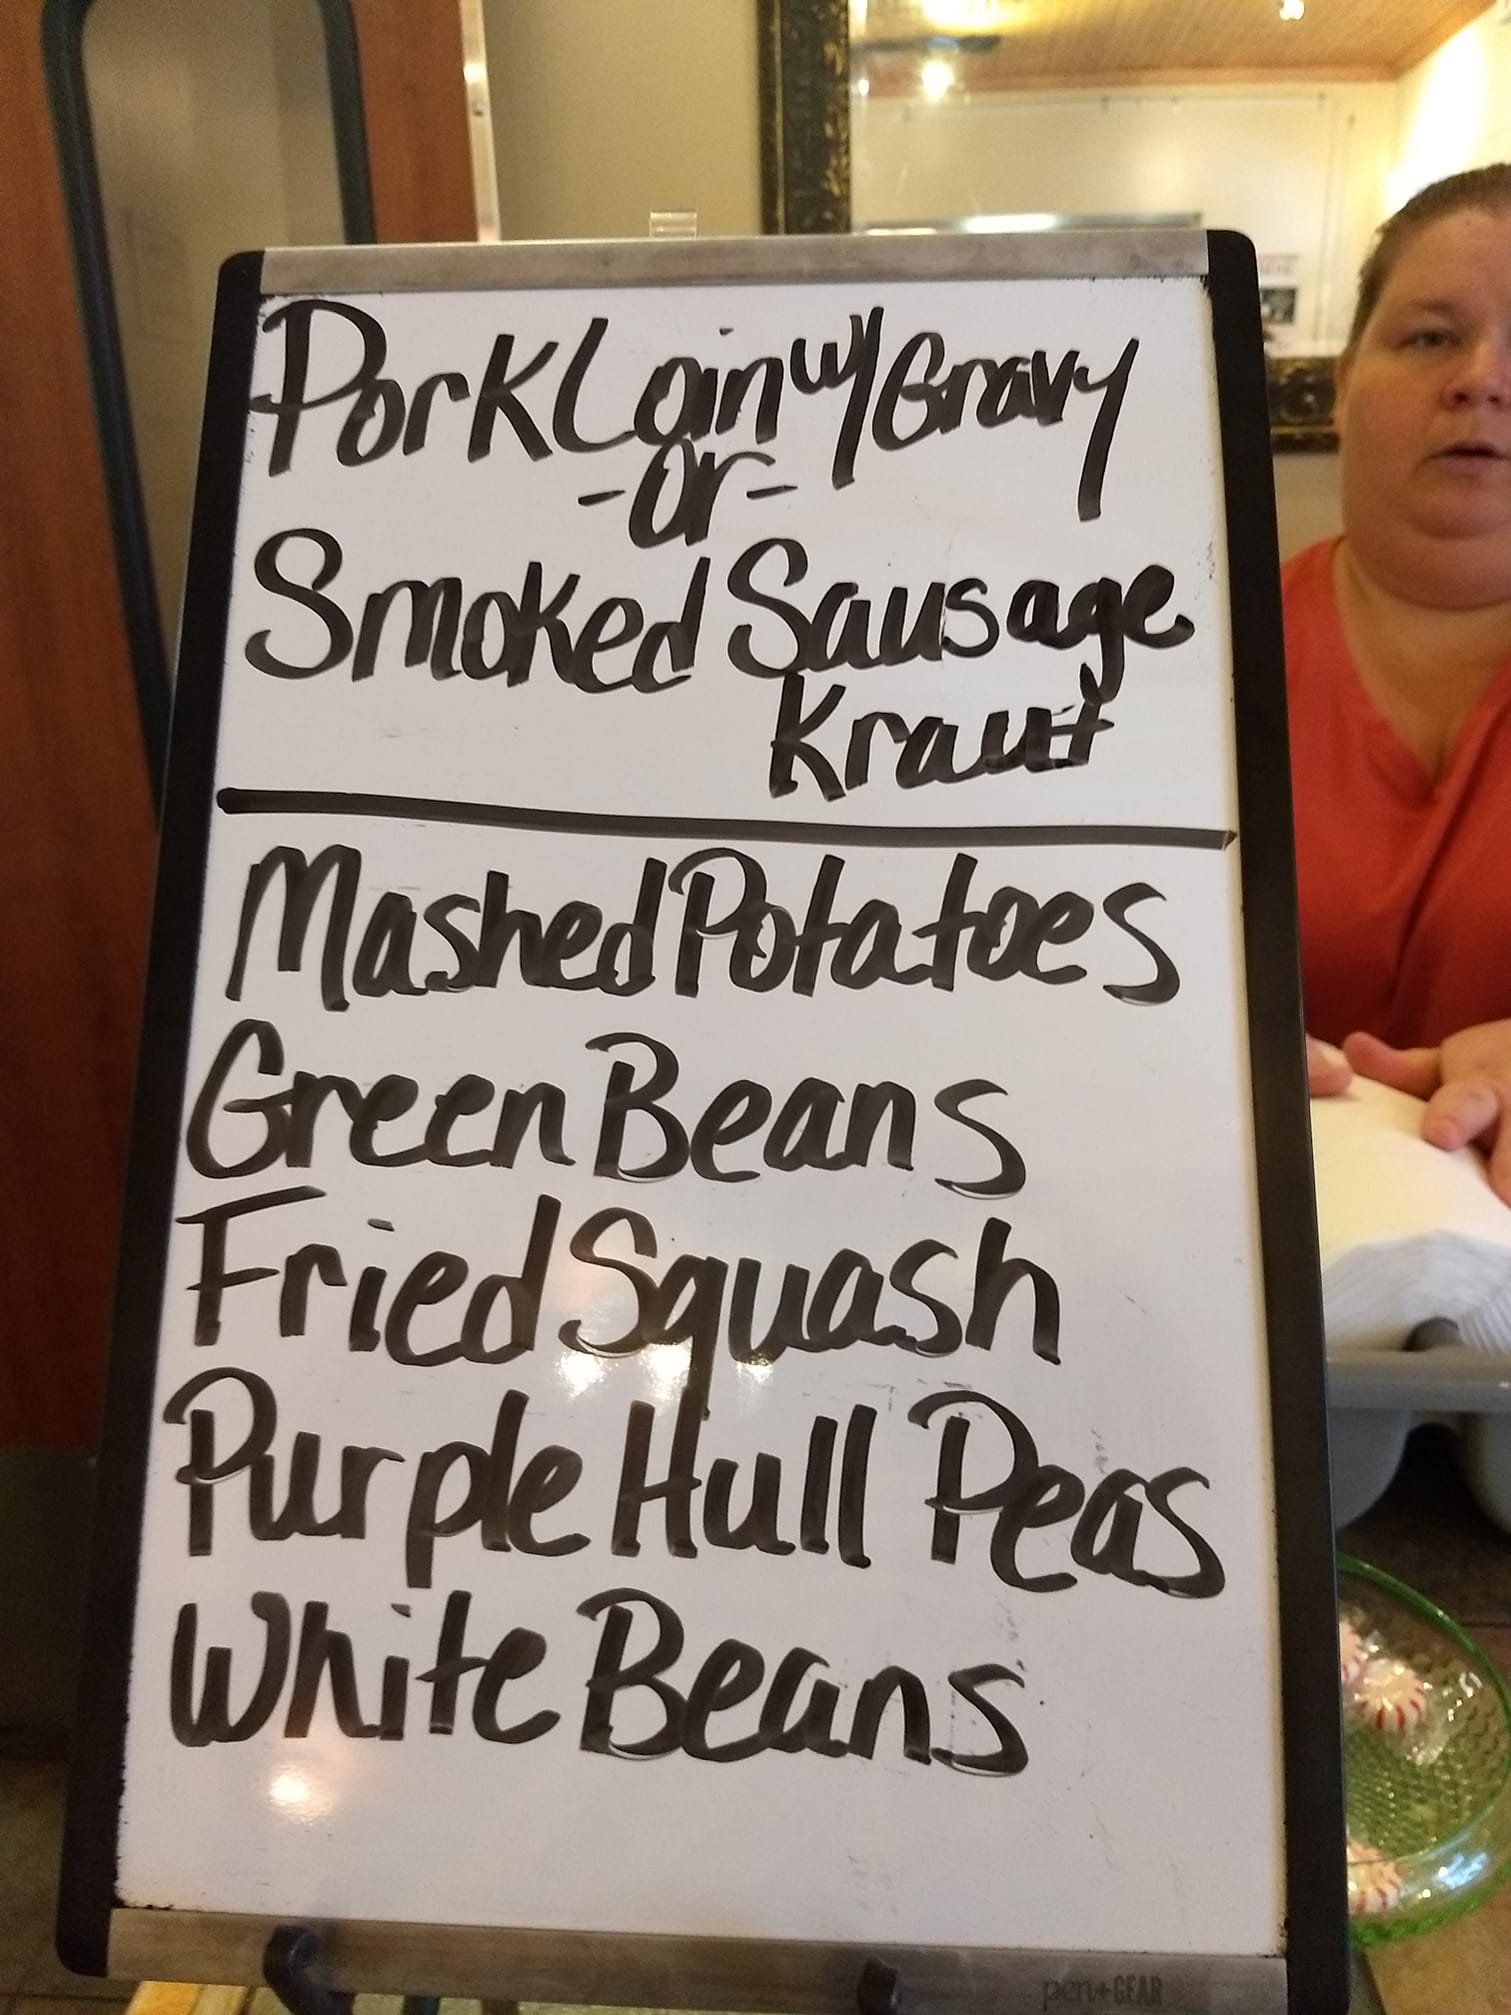 Pork Loin w/ Gravy
-or-
Smoked Sausage
Kraut
Mashed Potatoes
Green Beans
Fried Squash
Purple Hull Peas
White Beans
pen+GEAR